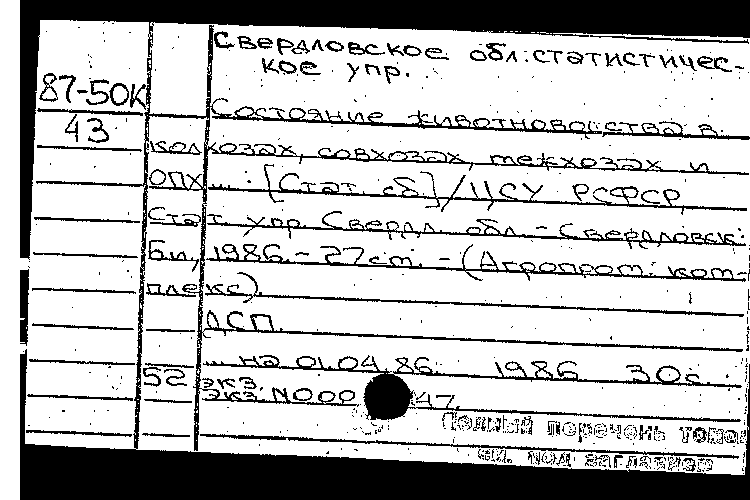 Свердловское обл. статистичес-
кое упр.
87-50К
43
Состояние животноводства в
колхозах, совхозах, межхозах и
ОПХ ... : [Стат. сб] / ЦСУ РСФСР,
Стат. упр. Свердл. обл. - Свердловск:
Б.и., 1986. - 27 см. - (Агропром. ком-
плекс)
ДСП.
... на 01.04.86. 1986 30с.
52 экз.
экз. N000 47.
Полный перечень томов
см. под заглавием